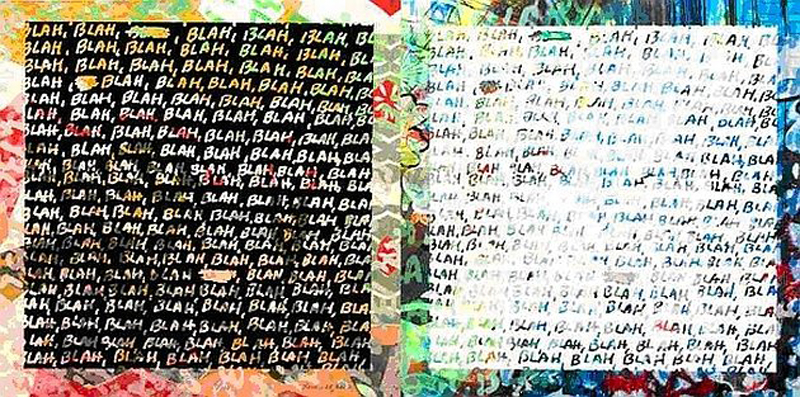 BLAH, BLAH, BLAH, BLAH, BLAH, BL
BLAH, BLAH, BLAH, BLAH, BLAH, BLAH,
BLAH, BLAH, BLAH, BLAH, BLAH, BLAH,
BLAH, BLAH, BLAH, BLAH, BLAH, BLAH,
BLAH, BLAH, BLAH, BLAH, BLAH, BLAH, BLAH
BLAH, BLAH, BLAH, BLAH, BLAH, BLAH, BLAH
BLAH, BLAH, BLAH, BLAH, BLAH, BLAH, BLAH,
BLAH, BLAH, BLAH, BLAH, BLAH, BLAH, BLA
BLAH, BLAH, BLAH, BLAH, BLAH, BLAH, BLAH
BLAH, BLAH, BLAH, BLAH, BLAH, BLAH, BLAH
LAH, BLAH, BLAH, BLAH, BLAH, BLAH, BLAH,
BLAH, BLAH, BLAH, BLAH, BLAH, BLAH, BLA
BLAH, BLAH, BLAH, BLAH, BLAH, BLAH, BLAH,
BLAH, BLAH, BLAH, BLAH, BLAH, BLAH, BLAH
BLAH, BLAH, BLAH, BLAH, BLAH, BLAH, BLAH
LAH, BLAH, BLAH, BLAH, BLAN BLAH, BLA
BLAH, BLAH, BLAH, BLAH, BLAH, BLAH, BLA
BLAH, BLAH, BLAH, BLAH, BLAH, BLAH, BLAH
BLAH, BLAH, BLAH, BLAH, BLAH, BLAH, BLA
BLAH, BLAH, BLAH, BLAH, BLAH, BLAH, BLAH
BLAH, BLAH, BLAH, BLAH, BLAH, BLAH, BLAH,
BLAH, BLAH, BLAH, BLAH, BLAH, BL
BLAH, BLAH, BLAH, BLAH, BLAH, BLAH, BL
BLAH, BLAH, BLAH, BLAH, BLAH, BLAH, BL
BLAH, BLAH, BLAH, BLAH, BLAH, BLAH
BLAH, BLAH, BLAH, BLAH, BLAH, BLAH, BLAH
BLAH, BLAH, BLAH, BLAH, BLAH, BLAH, BLAH
BLAH, BLAH, BLAH, BLAH, BLAH, BLAH, BLAH
BLAH, BLAH, BLAH, BLAH, BLAH, BLAH, BLA
BLAH, BLAH, BLAH, BLAH, BLAH, BLAH, BLAH
BLAH, BLAH, BLAH, BLAH, BLAH, BLAH, BLAH
LAH, BLAH, BLAH, BLAH, BLAH, BLAH, BLAH,
BLAH, BLAH, BLAH, BLAH, BLAH, BLAH, BLA
BLAH, BLAH, BLAH, BLAH, BLAH, BLAH, BLAH,
LAH, BLAH, BLAH, BLAH, BLAH, BLAH, BLA
BLAH, BLAH, BLAH, BLAH, BLAH, BLAH, BLA
LAH, BLAH, BLAH, BLAH, BLAH, BLAH, BLA
BLAH, BLAH, BLAH, BLAH, BLAH, BLAH, BLAH
BLAH, BLAH, BLAH, BLAH, BLAH, BLAH, BLA
BLAH, BLAH, BLAH, BLAH, BLAH, BLAH, BLAH,